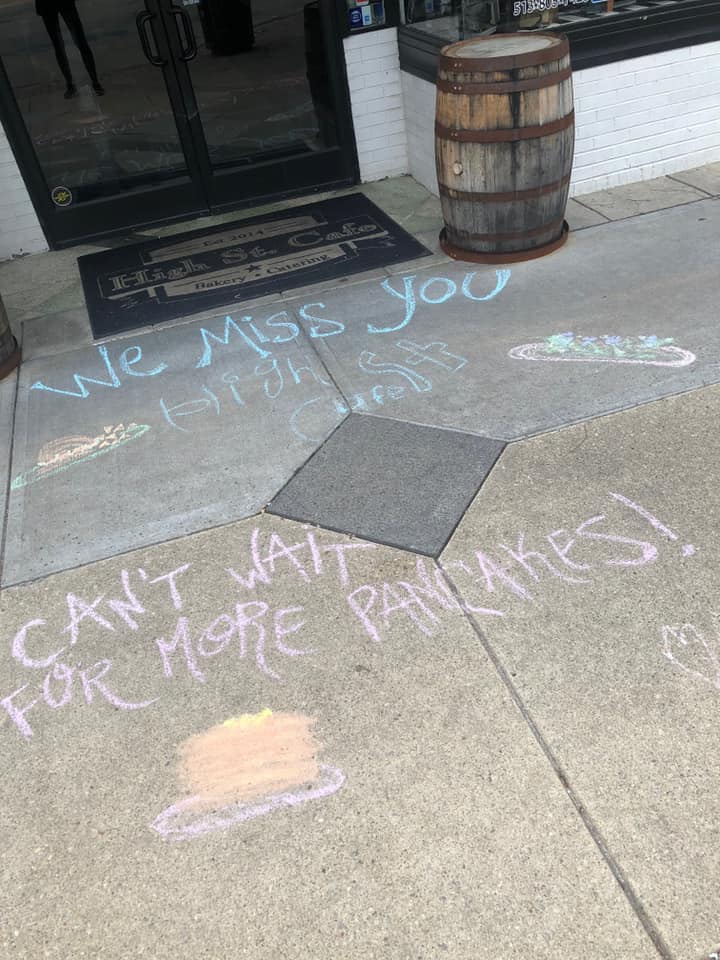 Est 2014
High St. Cafe
Bakery • Catering
We Miss You
High St
Cafe
CAN'T WAIT
FOR MORE PANCAKES!